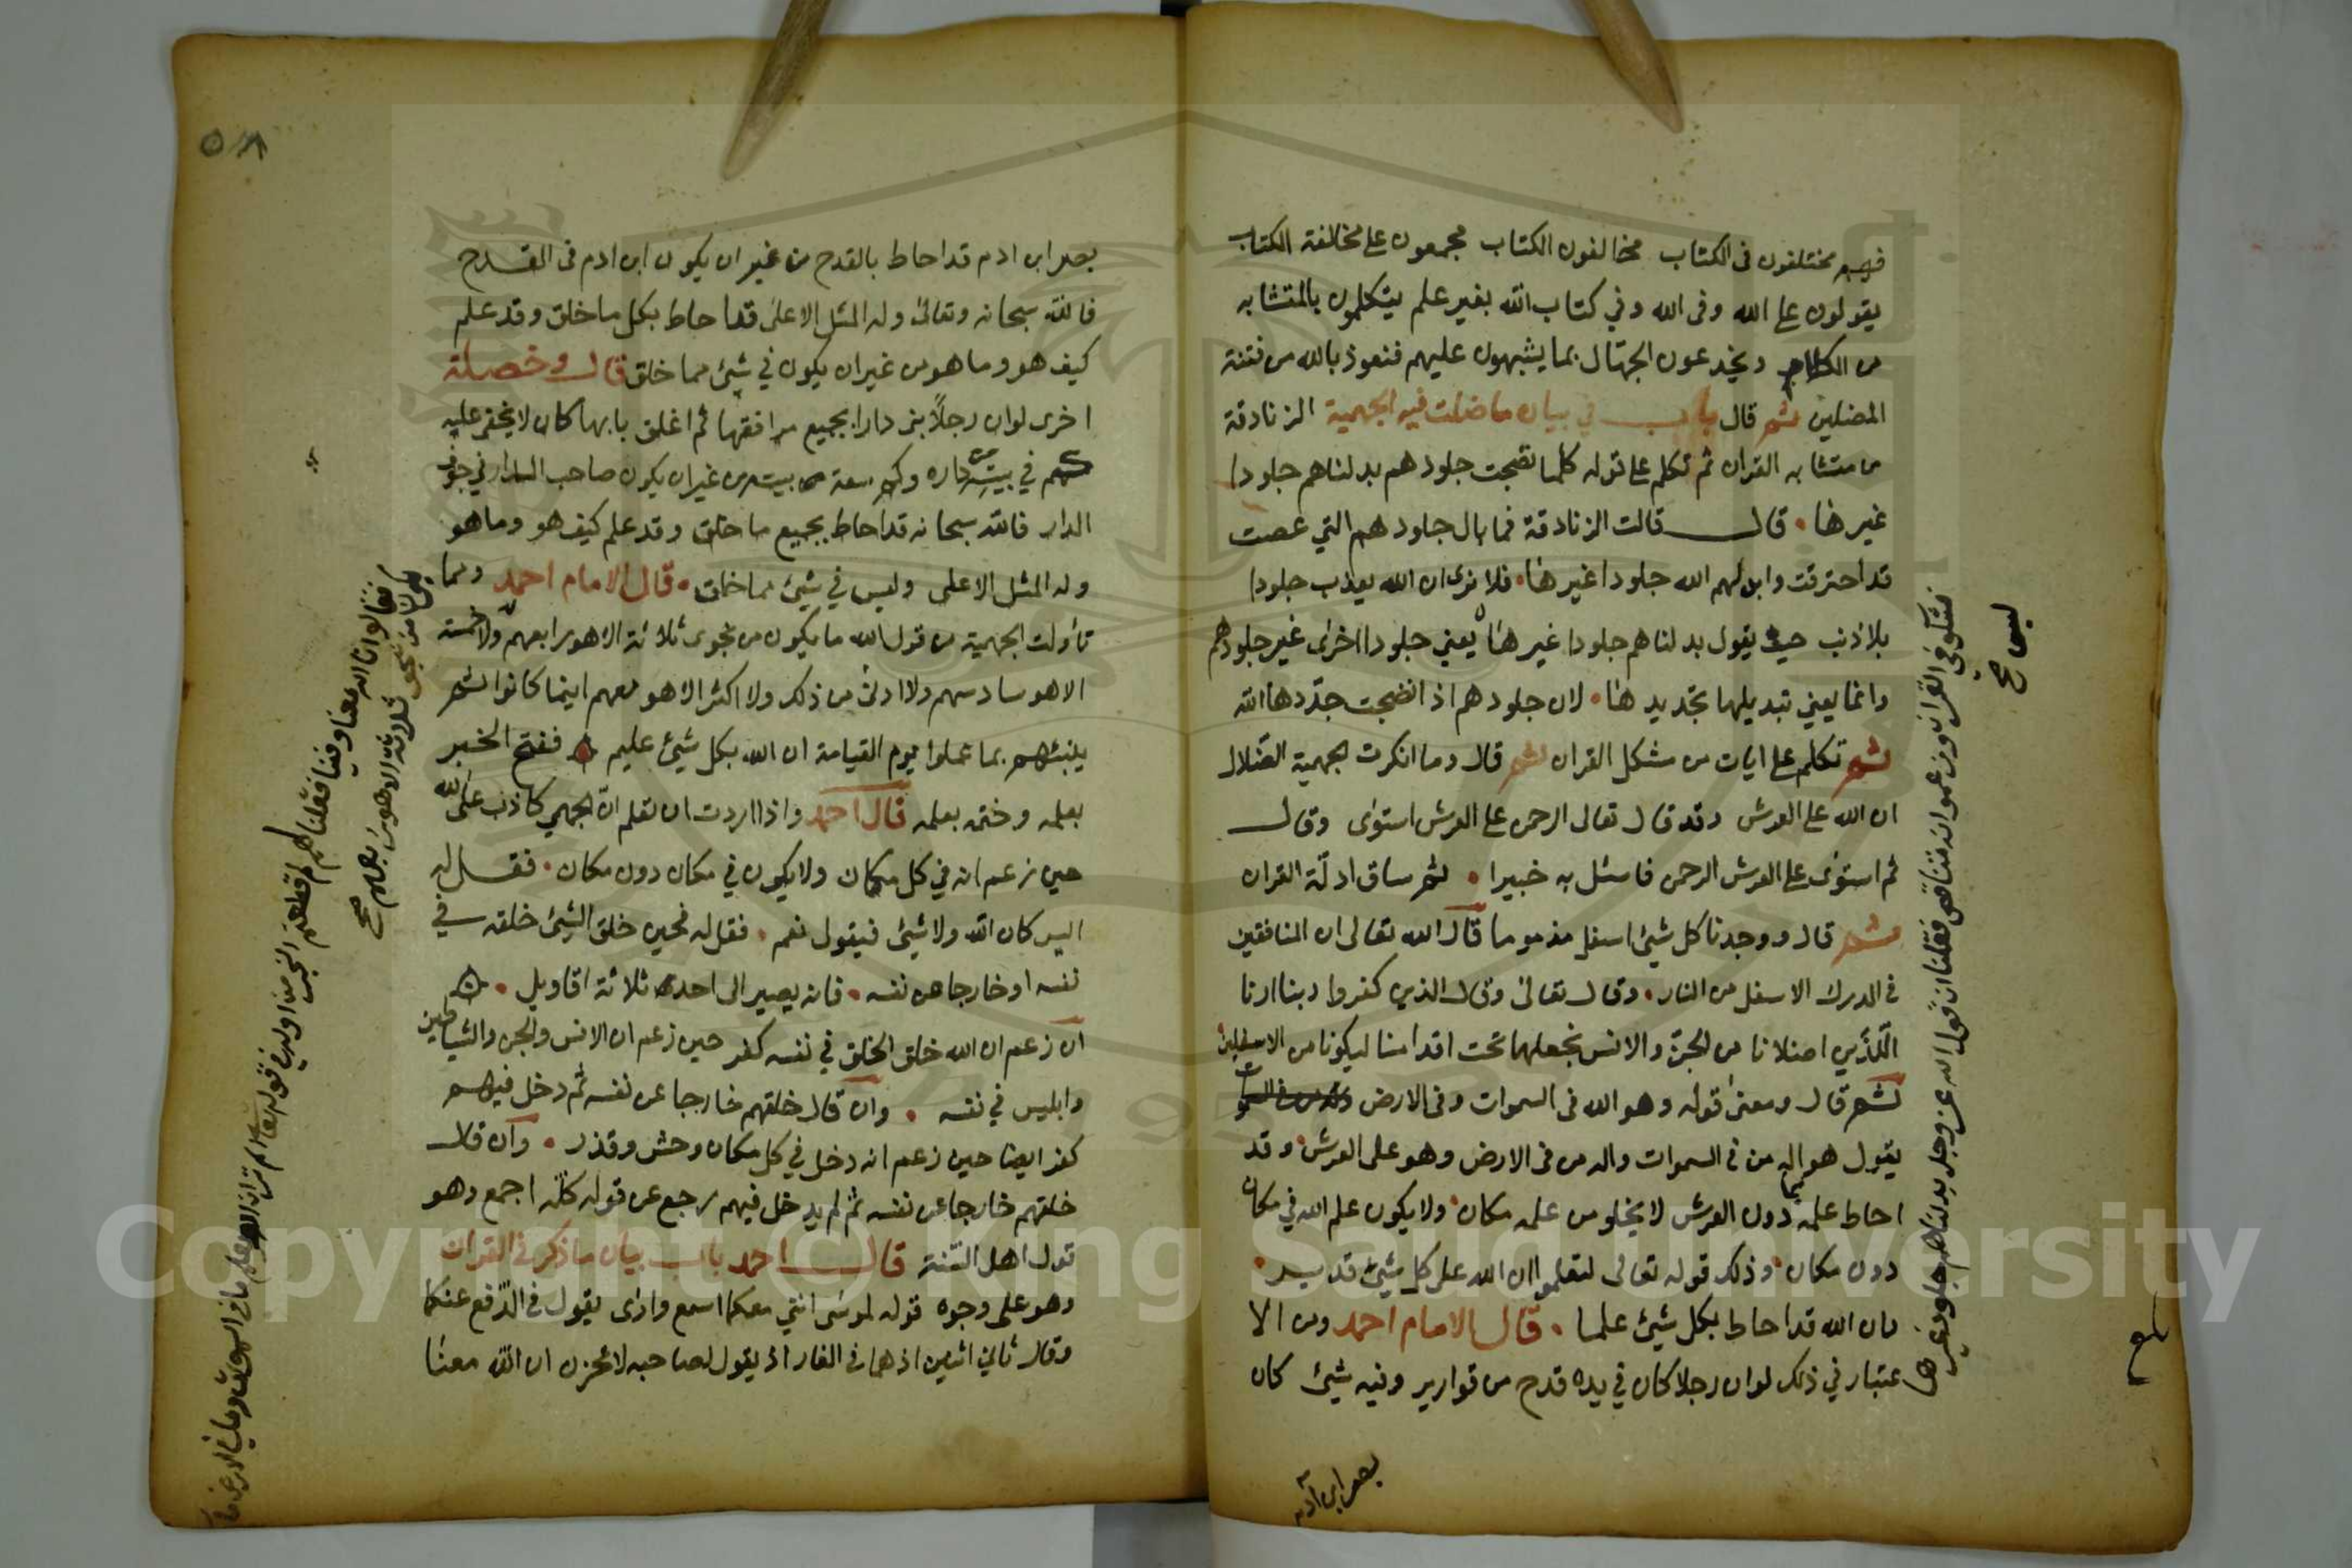 فهم مختلفون فى الكتاب مخالفون الكتاب مجمعون على مخالفة الكتاب
يقولون على الله وفى الله وفي كتاب الله بغير علم يتكلمون بالمتشابه
من الكلام ويخدعون الجهال بما يشبهون عليهم فنعوذ بالله من فتنة
المضلين ثم قال باب في بيان ما ضلت فيه الجهمية الزنادقة
من متشابه القران ثم تكلم على قوله كلما نضجت جلودهم بدلناهم جلودا
غيرها قال قالت الزنادقة فما بال جلودهم التي عصت
قد احترقت وابدلهم الله جلودا غيرها فلا نرى ان الله يعذب جلودا
بلا ذنب حين يقول بدلناهم جلودا غيرها يعني جلودا اخرى غير جلودهم
وانما يعني تبديلها تجديدها لان جلودهم اذا نضجت جددها الله
ثم تكلم على ايات من مشكل القران ثم قال وما انكرت الجهمية الضلال
ان الله على العرش وقد قال تعالى الرحمن على العرش استوى وقال
ثم استوى على العرش الرحمن فاسئل به خبيرا ثم ساق ادلة القران
ثم قال ووجدنا كل شيئ اسفل مذموما قال الله تعالى ان المنافقين
فى الدرك الاسفل من النار وقال تعالى وقال الذين كفروا ربنا ارنا
اللذين اضلانا من الجن والانس نجعلهما تحت اقدامنا ليكونا من الاسفلين
ثم قال ومعنى قوله وهو الله فى السموات وفى الارض
يقول هو اله من فى السموات واله من فى الارض وهو على العرش وقد
احاط علمه بما دون العرش لا يخلو من علمه مكان ولا يكون علم الله في مكان
دون مكان وذلك قوله تعالى لتعلموا ان الله على كل شيئ قدير
وان الله قد احاط بكل شيئ علما قال الامام احمد ومن الا
عتبار في ذلك لو ان رجلا كان في يده قدح من قوارير وفيه شيئ كان
بصر ابن آدم
فشكوا فى القران وزعموا انه متناقض فقلنا ان قول الله عز وجل بدلناهم جلودا غيرها
ليس صح
بلغ
بصر ابن ادم قد احاط بالقدح من غير ان يكون ابن ادم فى القدح
فالله سبحانه وتعالى وله المثل الاعلى قد احاط بكل ما خلق وقد علم
كيف هو وما هو من غير ان يكون في شيئ مما خلق قال وخصلة
اخرى لو ان رجلاً بنى دارا بجميع مرافقها ثم اغلق بابها كان لا يخفى عليه
كم في بيت داره وكم سعة كل بيت من غير ان يكون صاحب الدار في جوف
الدار فالله سبحانه قد احاط بجميع ما خلق وقد علم كيف هو وما هو
وله المثل الاعلى وليس في شيئ مما خلق قال الامام احمد ومما
تأولت الجهمية من قول الله ما يكون من نجوى ثلاثة الا هو رابعهم ولا خمسة
الا هو سادسهم ولا ادنى من ذلك ولا اكثر الا هو معهم اينما كانوا ثم
ينبئهم بما عملوا يوم القيامة ان الله بكل شيئ عليم ففتح الخبر
بعلمه وختمه بعلمه قال احمد واذا اردت ان تعلم ان الجهمي كاذب على الله
حين زعم انه في كل مكان ولا يكون في مكان دون مكان فقل له
اليس كان الله ولا شيئ فيقول نعم فقل له فحين خلق الشيئ خلقه في
نفسه او خارجا عن نفسه فانه يصير الى احد ثلاثة اقاويل
ان زعم ان الله خلق الخلق في نفسه كفر حين زعم ان الانس والجن والشياطين
وابليس في نفسه وان قال خلقهم خارجا عن نفسه ثم دخل فيهم
كفر ايضا حين زعم انه دخل في كل مكان وحش وقذر وان قال
خلقهم خارجا عن نفسه ثم لم يدخل فيهم رجع عن قوله كله اجمع وهو
قول اهل السنة قال احمد باب بيان ما ذكر فى القران
وهو على وجوه قوله لموسى انني معكما اسمع وارى يقول فى الدفع عنكما
وقال ثاني اثنين اذ هما فى الغار اذ يقول لصاحبه لا تحزن ان الله معنا
ما يكون من نجوى ثلاثة الا هو رابعهم صح
فقالوا ان الله معنا وفينا فقلنا لهم لم قطعتم الخبر من اوله ان قوله تعالى الم تر ان الله يعلم ما فى السموات وما فى الارض
Copyright © King Saud University
1957